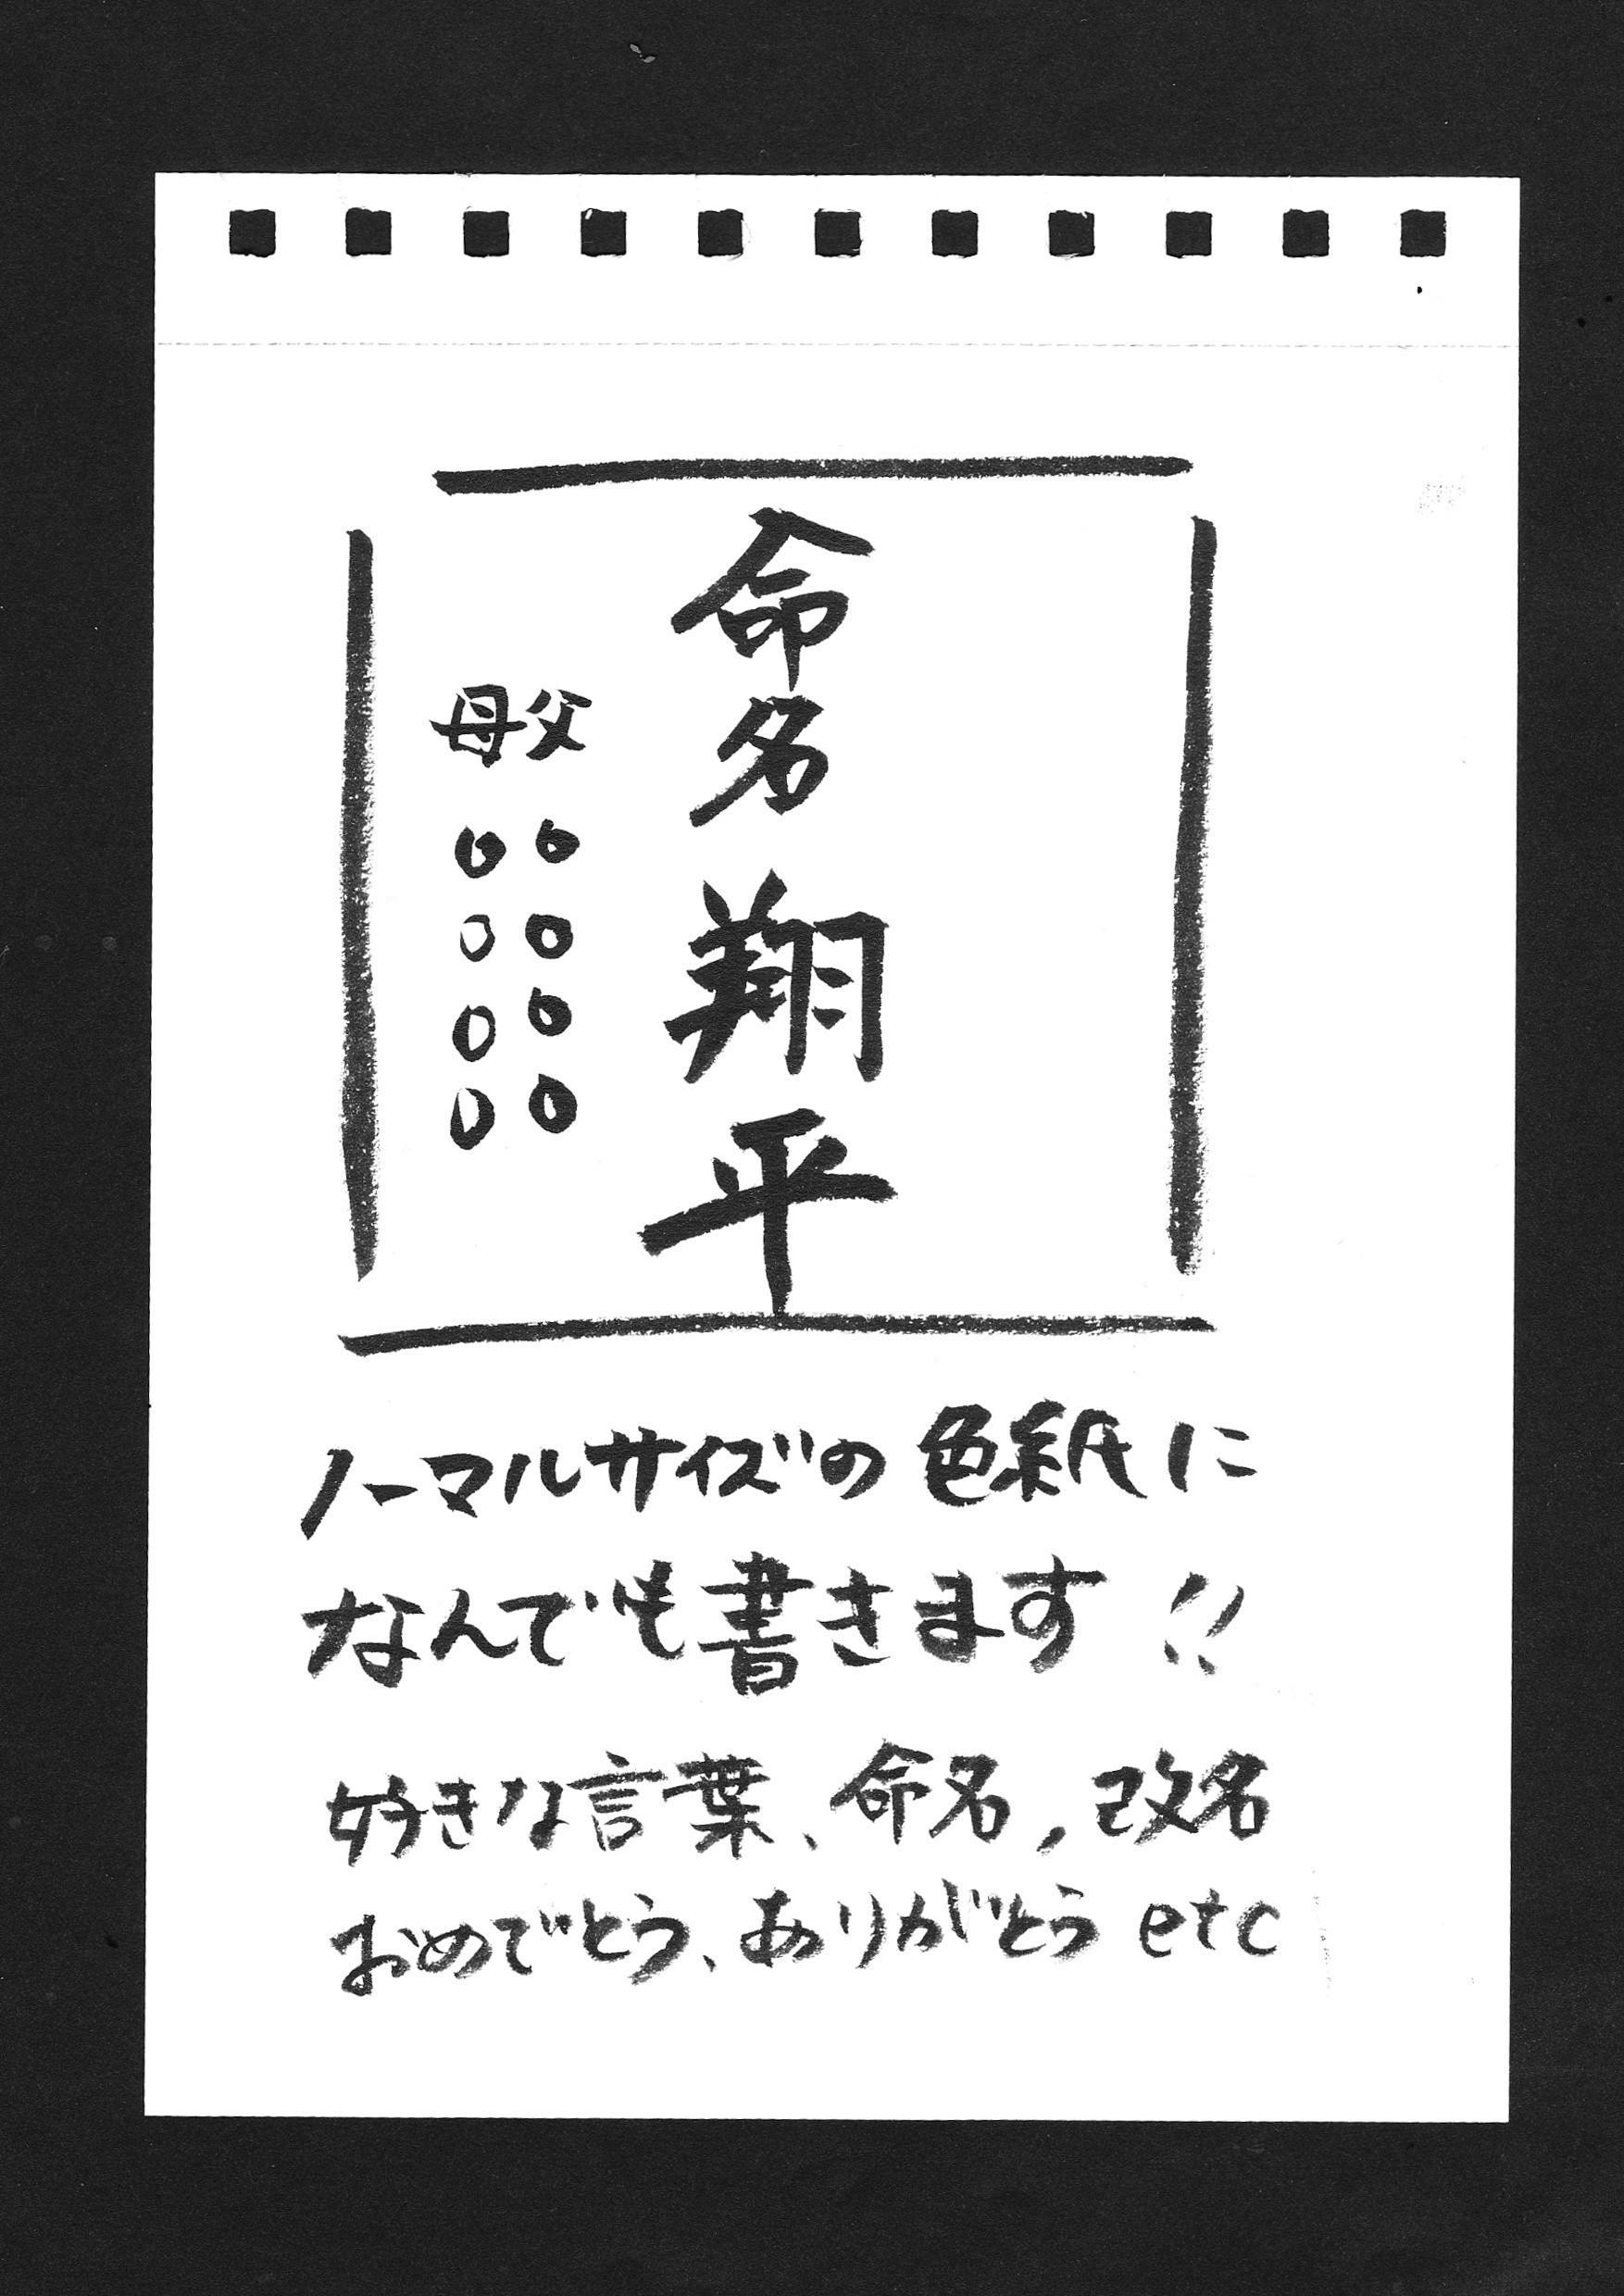 命名 翔平
父 〇〇〇〇
母 〇〇〇〇
ノーマルサイズの色紙に
なんでも書きます!!
好きな言葉、命名, 改名
おめでとう、ありがとう etc